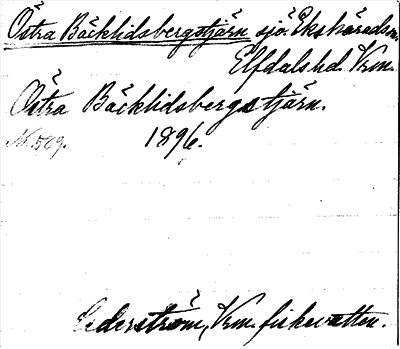 Östra Bäcklidsbergstjärn sjö. Ekshäradsn.
Elfdalshd. Vrm.
Östra Bäcklidsbergstjärn.
N. 509. 1896.
Cederström, Vrm. fiskevatten.